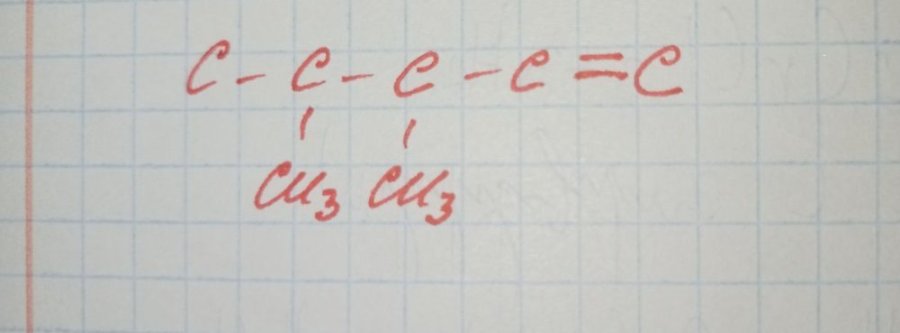 C - C - C - C = C
CH3 CH3